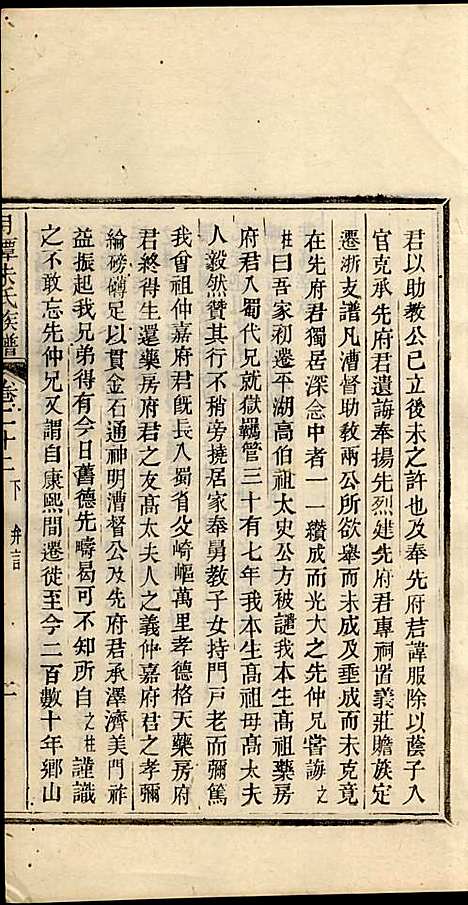 君以助教公已立後未之許也及奉先府君諱服除以蔭子入
官克承先府君遺誨奉揚先烈建先府君專祠置義莊贍族定
遷浙支譜凡漕督助教兩公所欲舉而未成及垂成而未克竟
在先府君獨居深念中者一一纘成而光大之先仲兄嘗誨之
柱曰吾家初遷平湖高伯祖太史公方被譴我本生高祖藥房
府君入蜀代兄就獄羈管三十有七年我本生高祖母高太夫
人毅然贊其行不稍旁撓居家奉舅教子女持門戶老而彌篤
我曾祖仲嘉府君旣長入蜀省父崎嶇萬里孝德格天藥房府
君終得生還藥房府君之友高太夫人之義仲嘉府君之孝彌
綸磅礡足以貫金石通神明漕督公及先府君承澤濟美門祚
益振起我兄弟得有今日舊德先疇曷可不知所自之柱謹識
之不敢忘先仲兄又謂自康熙間遷徙至今二百數十年鄉山
月潭朱氏族譜 卷二十二 下 弁言